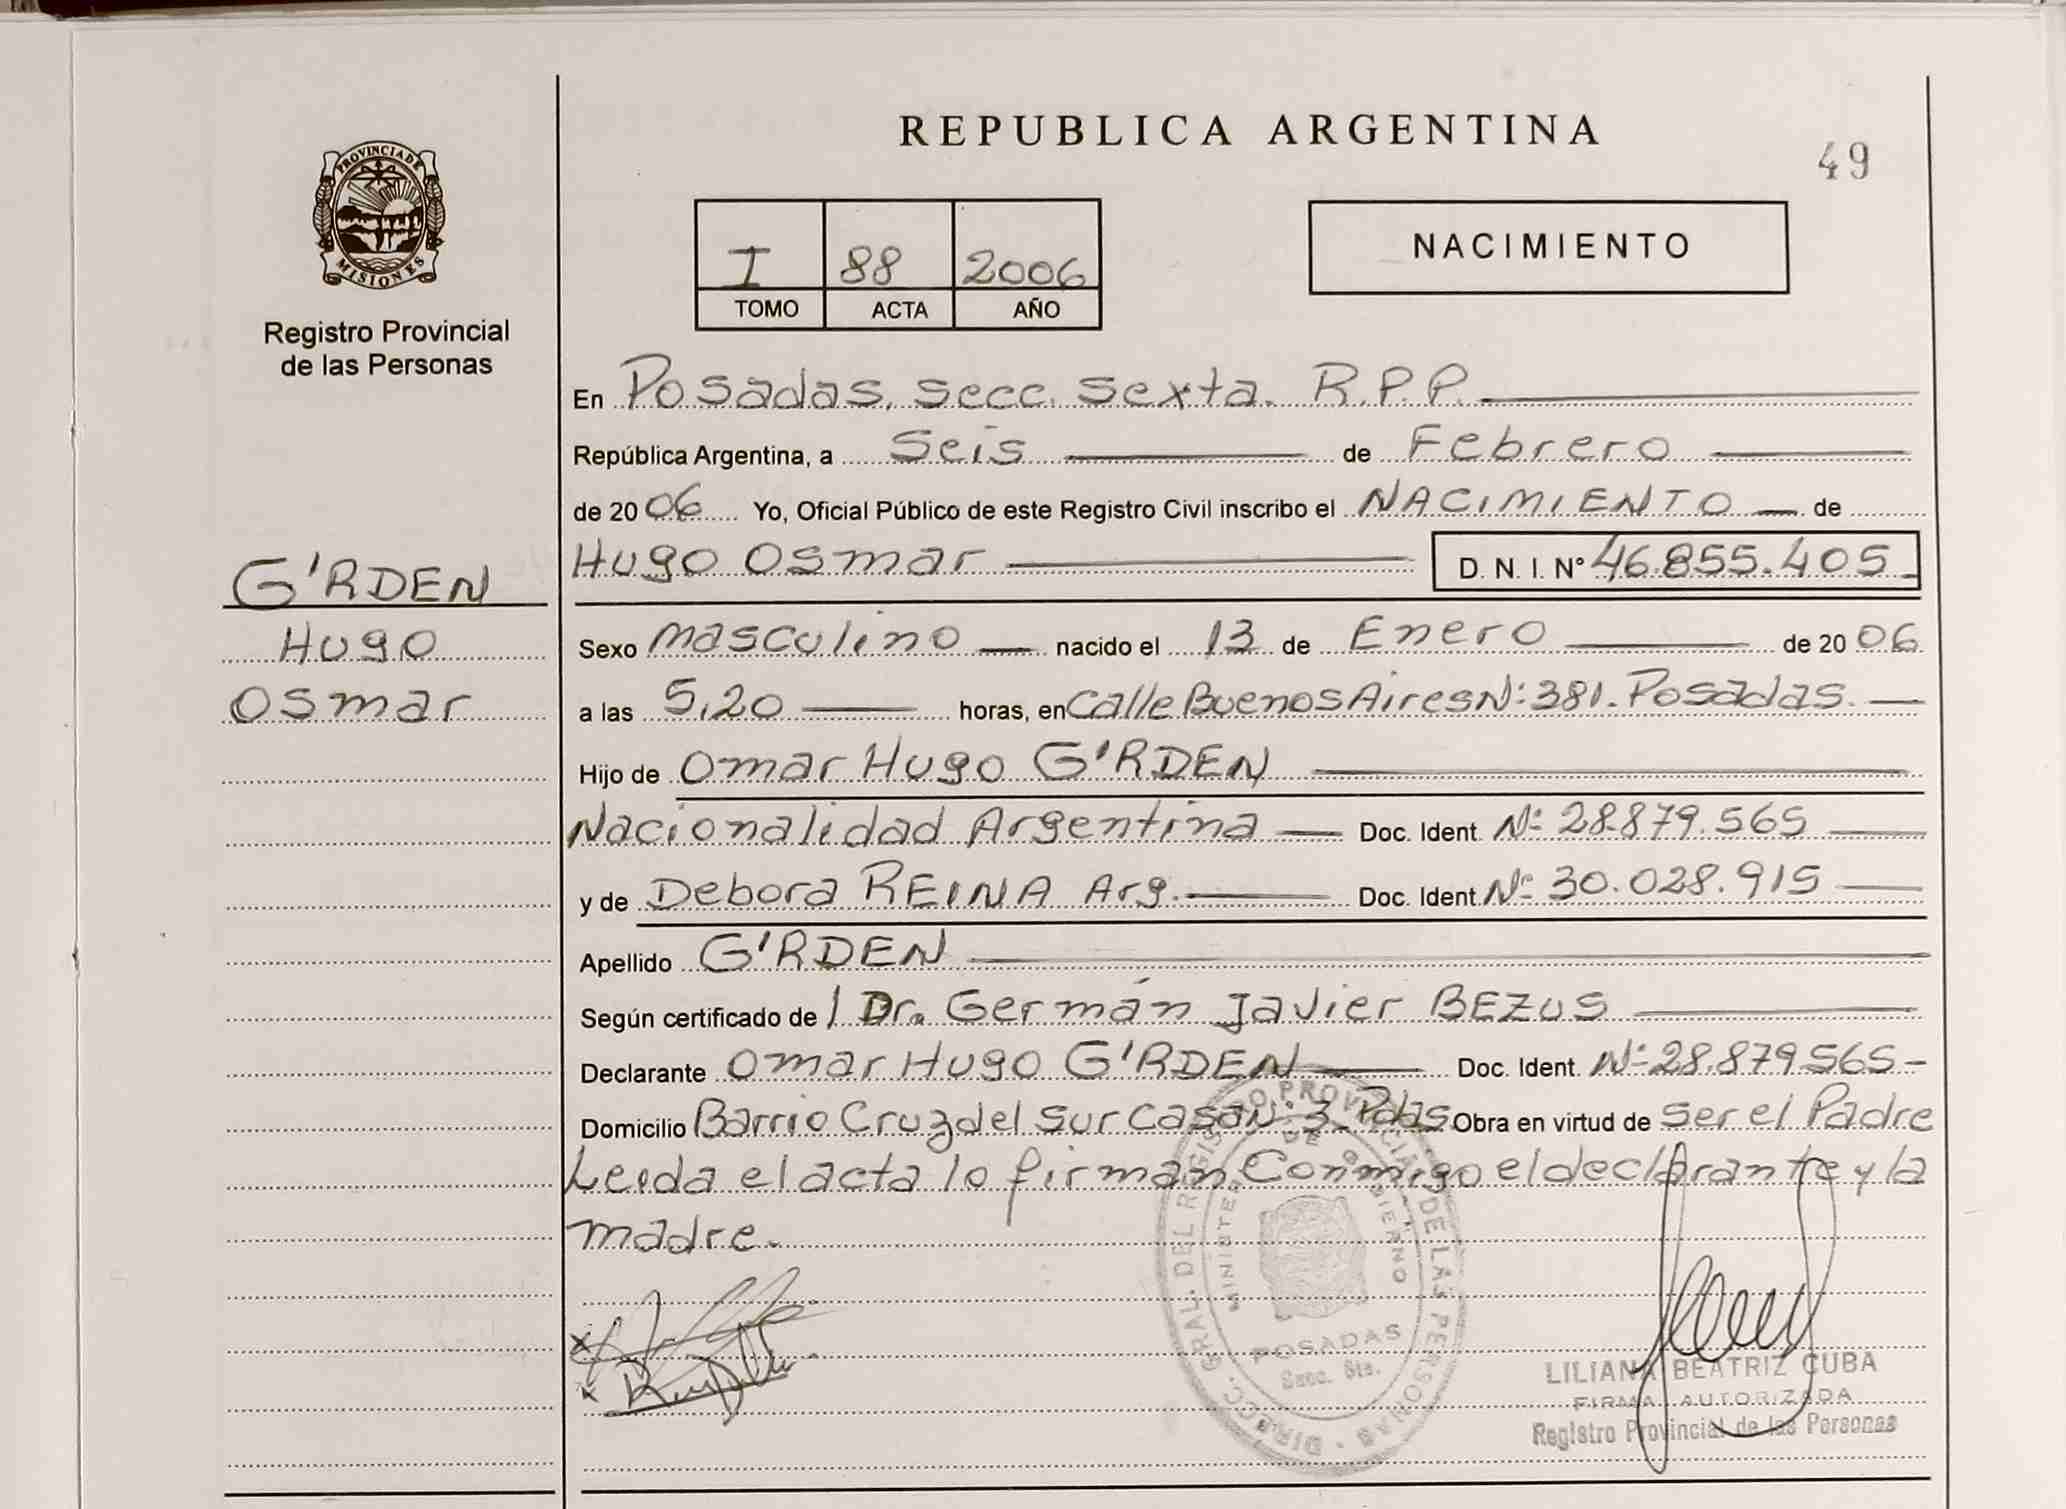 REPUBLICA ARGENTINA
49
PROVINCIA DE
MISIONES
Registro Provincial
de las Personas
I 88 2006
TOMO ACTA AÑO
NACIMIENTO
En Posadas, Secc. Sexta. R.P.P.
República Argentina, a Seis de Febrero
de 2006 Yo, Oficial Público de este Registro Civil inscribo el NACIMIENTO de
Hugo Osmar D. N. I. Nº 46.855.405
G'RDEN
Hugo
Osmar
Sexo masculino nacido el 13 de Enero de 2006
a las 5,20 horas, en Calle Buenos Aires Nº 381. Posadas.
Hijo de Omar Hugo G'RDEN
Nacionalidad Argentina Doc. Ident. Nº 28.879.565
y de Debora REINA Arg. Doc. Ident. Nº 30.028.915
Apellido G'RDEN
Según certificado de l Dr. Germán Javier BEZUS
Declarante Omar Hugo G'RDEN Doc. Ident. Nº 28.879.565
Domicilio Barrio Cruz del Sur Casa Nº 3 Pdas. Obra en virtud de Ser el Padre
Leida el acta lo firman Conmigo el declarante y la
madre.
DIRECC. GRAL. DEL REGISTRO PROVINCIAL DE LAS PERSONAS
MINISTERIO DE GOBIERNO
POSADAS
Secc. 6ta.
LILIANA BEATRIZ CUBA
FIRMA AUTORIZADA
Registro Provincial de las Personas